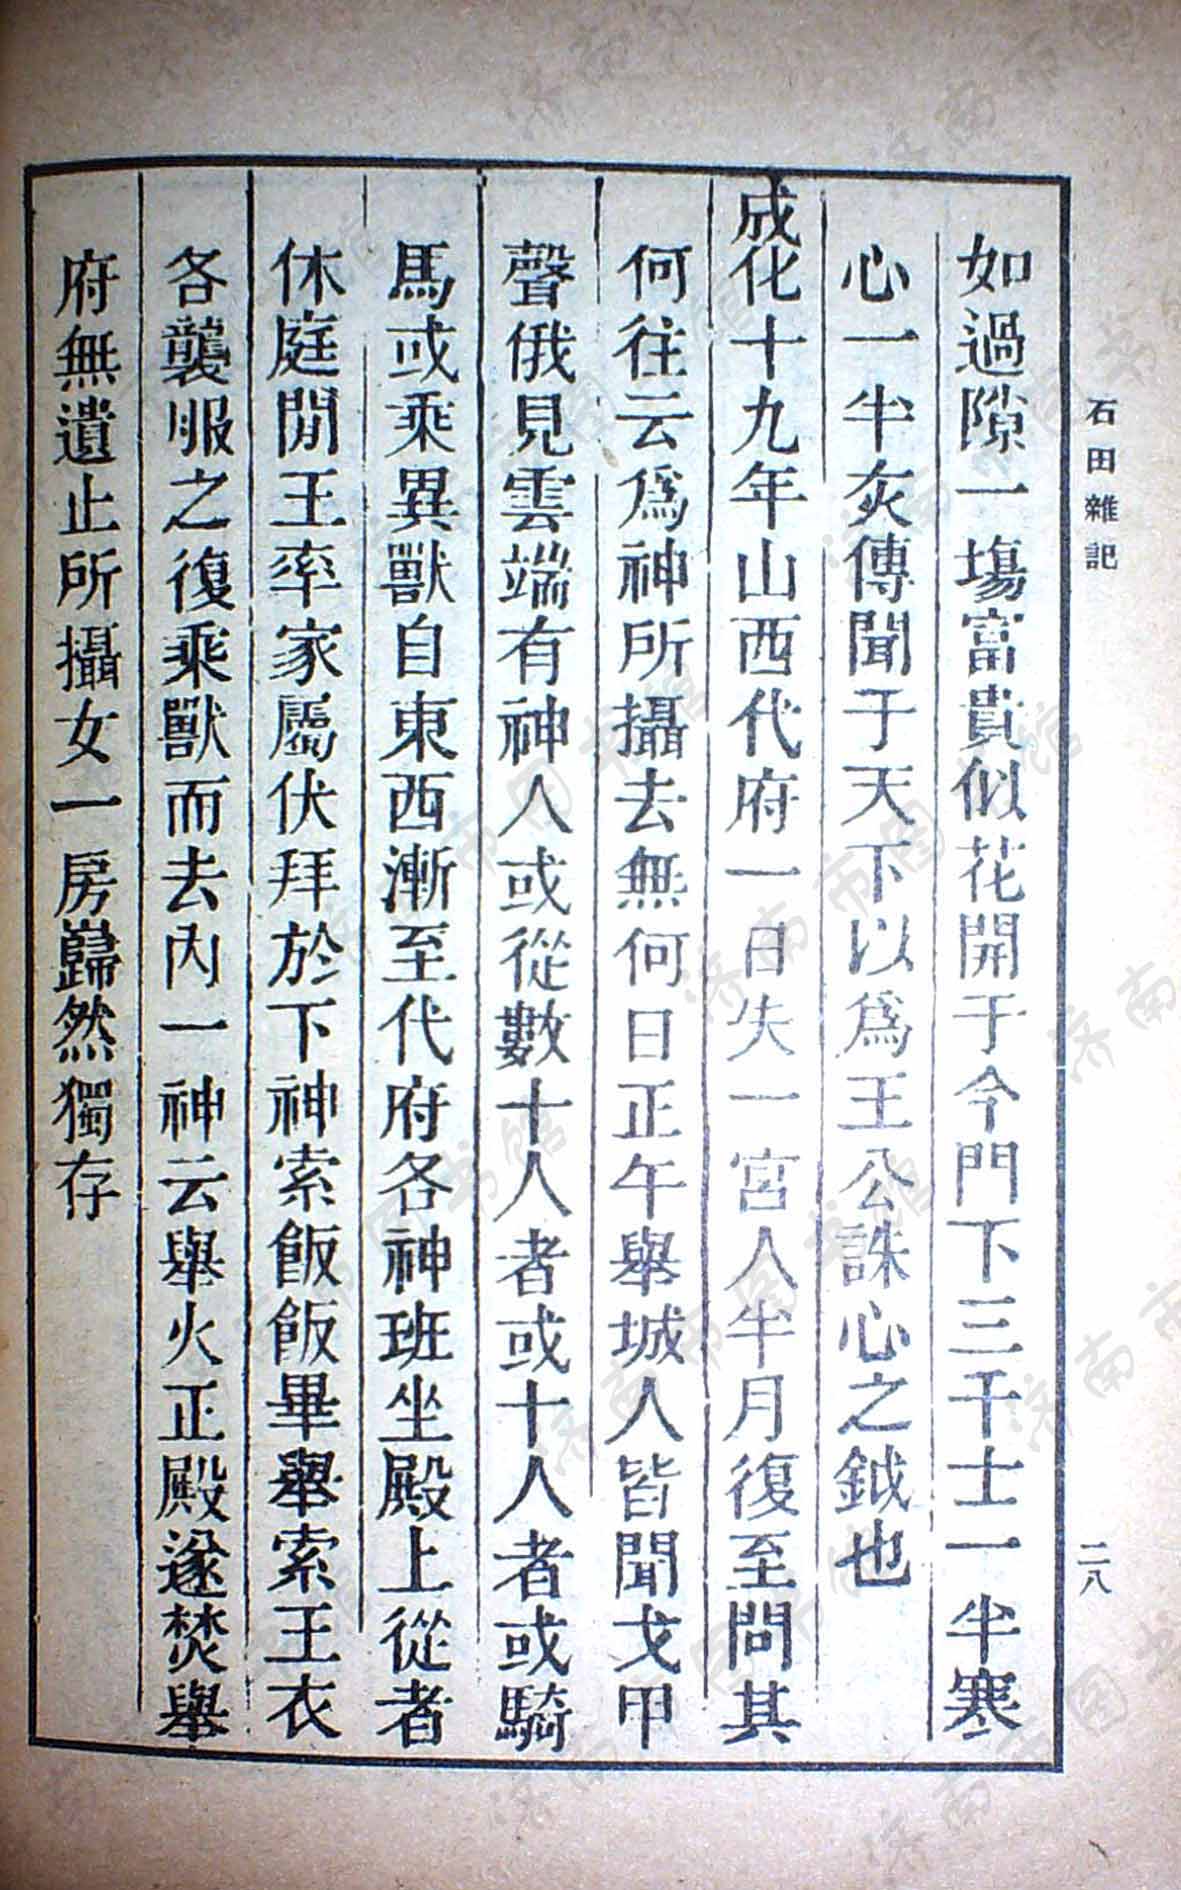 石田雜記
二八
如過隙一塲富貴似花開于今門下三千士一半寒
心一半亥傳聞于天下以爲王公誅心之鉞也
成化十九年山西代府一日失一宮人半月復至問其
何往云爲神所攝去無何日正午舉城人皆聞戈甲
聲俄見雲端有神人或從數十人者或十人者或騎
馬或乘異獸自東西漸至代府各神班坐殿上從者
休庭閒王率家屬伏拜於下神索飯飯畢舉索王衣
各襲服之復乘獸而去內一神云舉火正殿遂焚舉
府無遺止所攝女一房巋然獨存
济南市图书馆